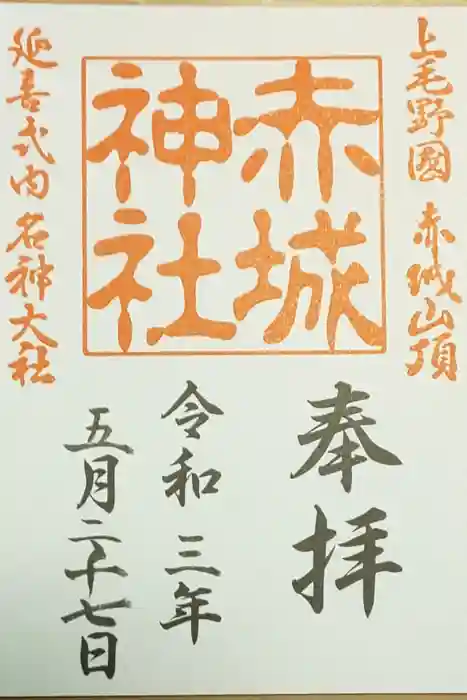 上毛野國 赤城山頂
赤城
神社
延喜式内名神大社
奉拝
令和三年
五月二十七日